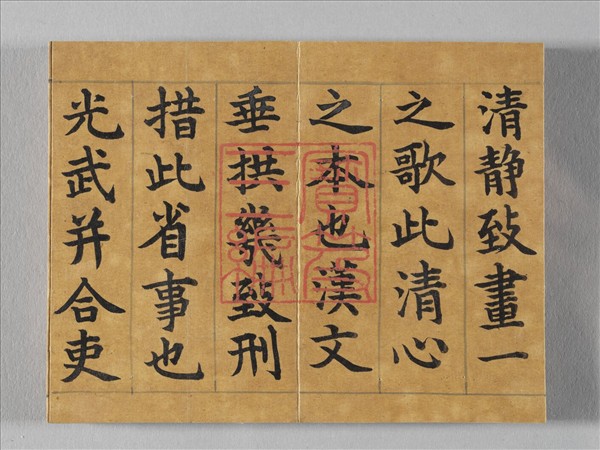 清靜致畫一
之歌此清心
之本也漢文
垂拱幾致刑
措此省事也
光武并合吏